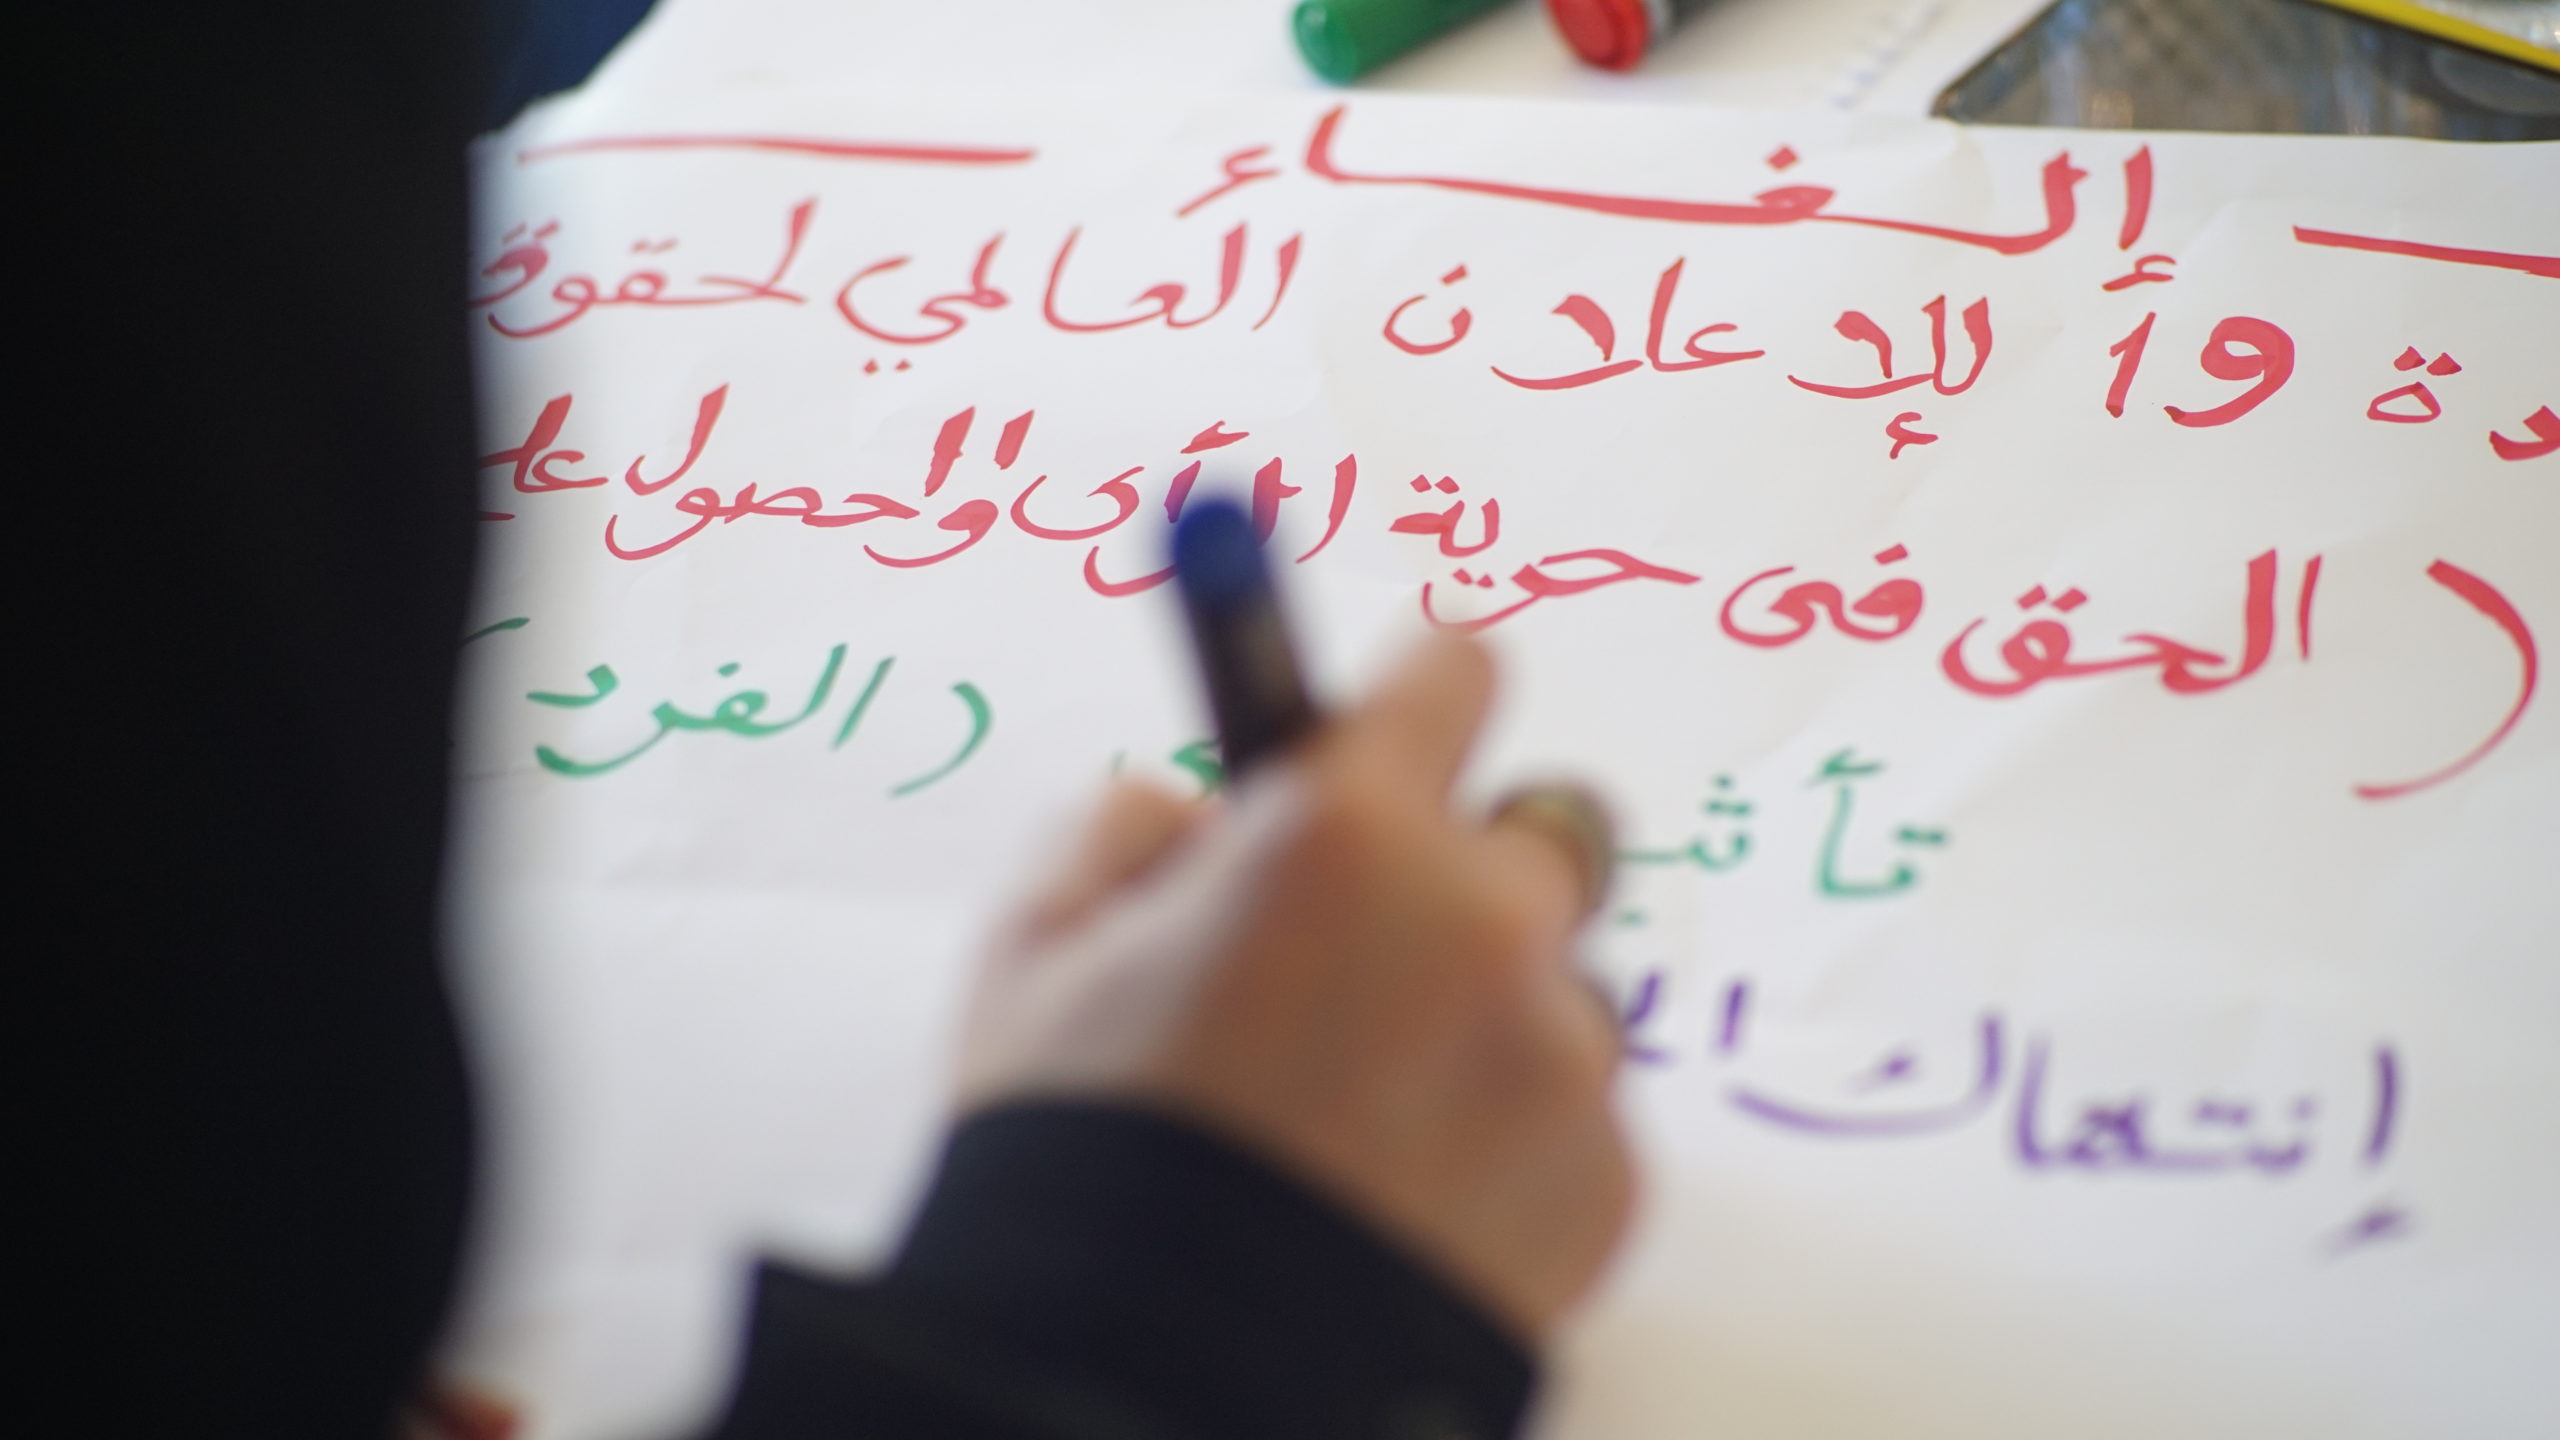 إلغاء
دة ١٩ للإعلان العالمي لحقوق
(الحق فى حرية الرأى والحصول على
(الفرد
إنتهاك